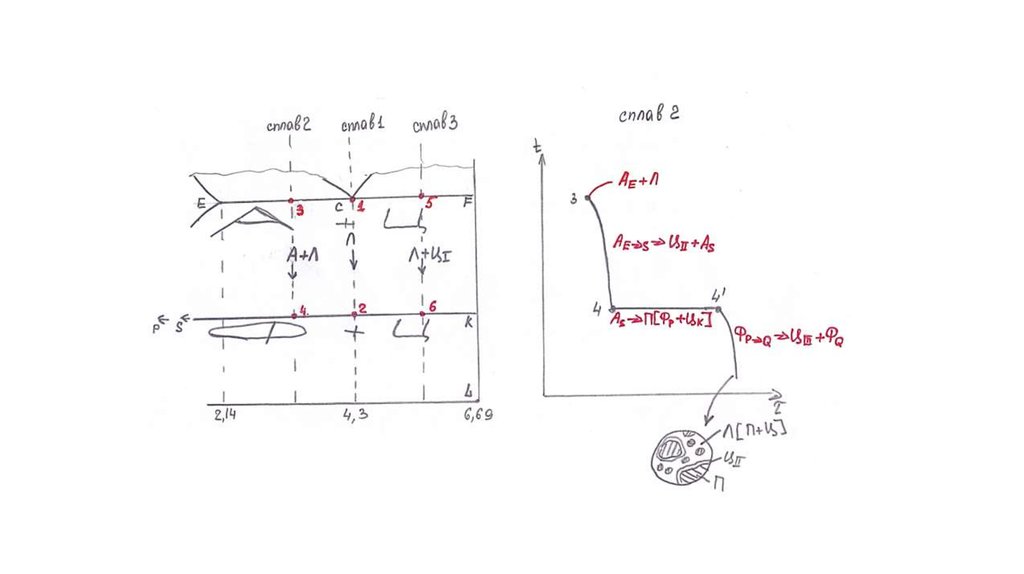 сплав2 сплав1 сплав3
E 3 C 1 5 F
А+Л Л Л+ЦI
P S 4 2 6 K
L
2,14 4,3 6,69
сплав 2
t
3 AE+Л
AE→S → ЦII + AS
4 4'
AS→П[ФP+ЦK]
ФP→Q → ЦIII + ФQ
Л[П+Ц]
ЦII
П